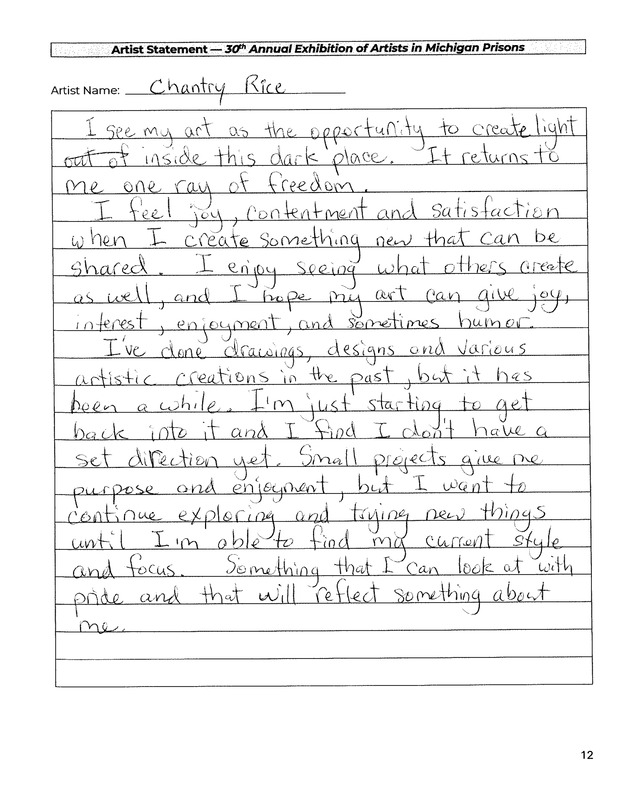 Artist Statement — 30th Annual Exhibition of Artists in Michigan Prisons
Artist Name: Chantry Rice
I see my art as the opportunity to create light
out of inside this dark place. It returns to
me one ray of freedom.
I feel joy, contentment and satisfaction
when I create something new that can be
shared. I enjoy seeing what others create
as well, and I hope my art can give joy,
interest, enjoyment, and sometimes humor.
I've done drawings, designs and various
artistic creations in the past, but it has
been a while. I'm just starting to get
back into it and I find I don't have a
set direction yet. Small projects give me
purpose and enjoyment, but I want to
continue exploring and trying new things
until I'm able to find my current style
and focus. Something that I can look at with
pride and that will reflect something about
me.
12